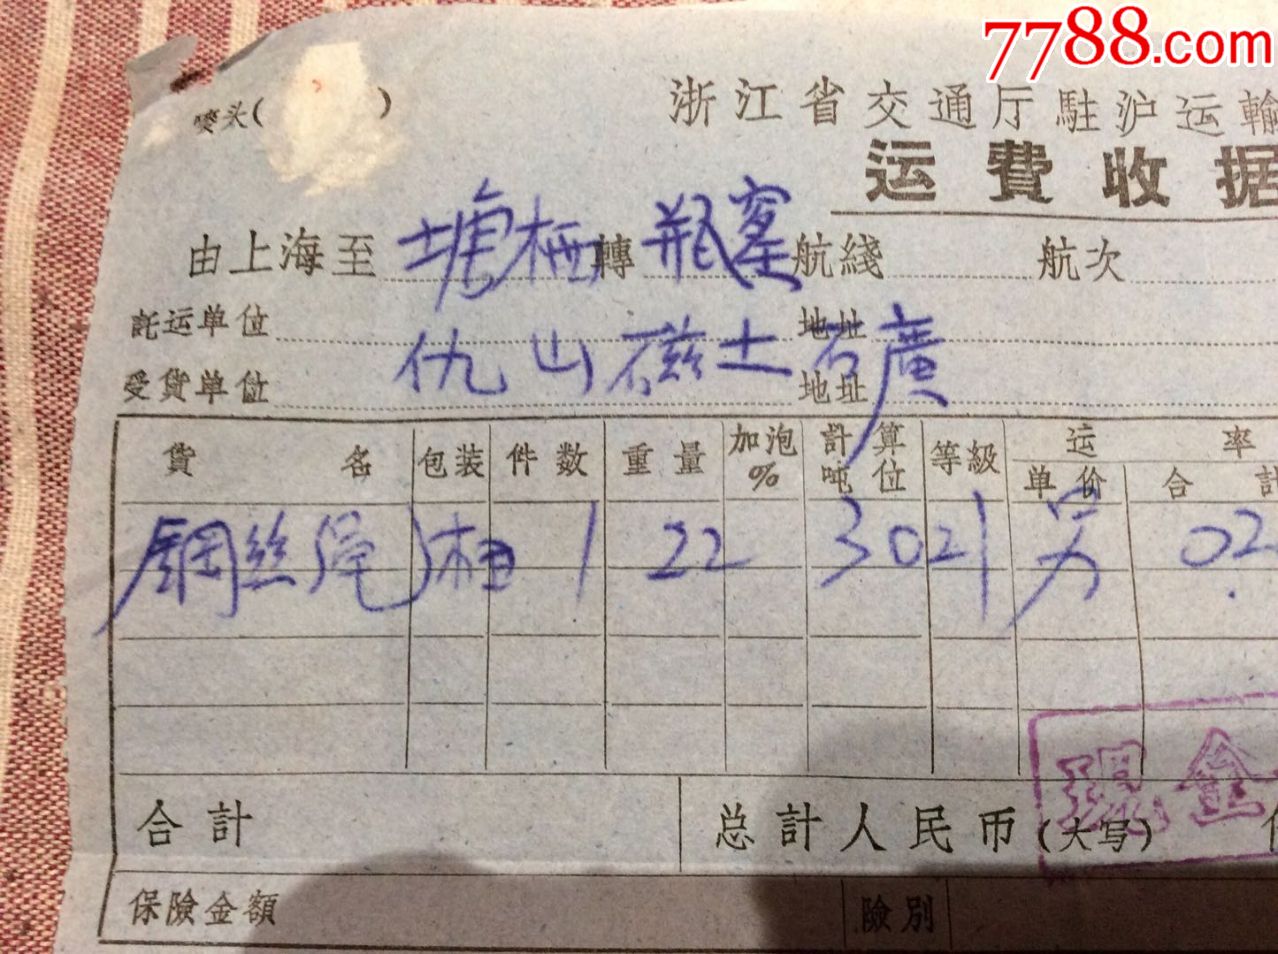 7788.com
唛头( )
浙江省交通厅駐沪运輸
运費收据
由上海至 塘栖 轉 瓶窰 航綫 航次
託运单位 地址
受貨单位 仇山磁土石廣 地址
貨名 包装 件数 重量 加泡% 計算吨位 等級 运率
单价 合計
鋼丝绳 1 22 3021 另 02
合計 总計人民币(大写)
现金
保險金額 險別